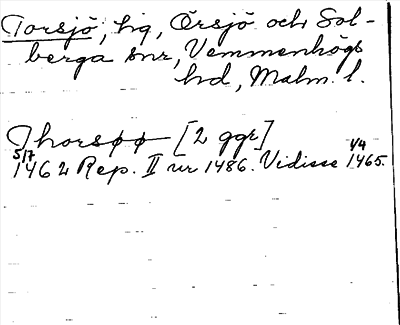 Torsjö, hg, Örsjö och Sol-
berga snr, Vemmenhögs
hd, Malm. l.
Thorsøø [2 ggr]
5/7 1462 Rep. II nr 1486. Vidisse 1/4 1465.